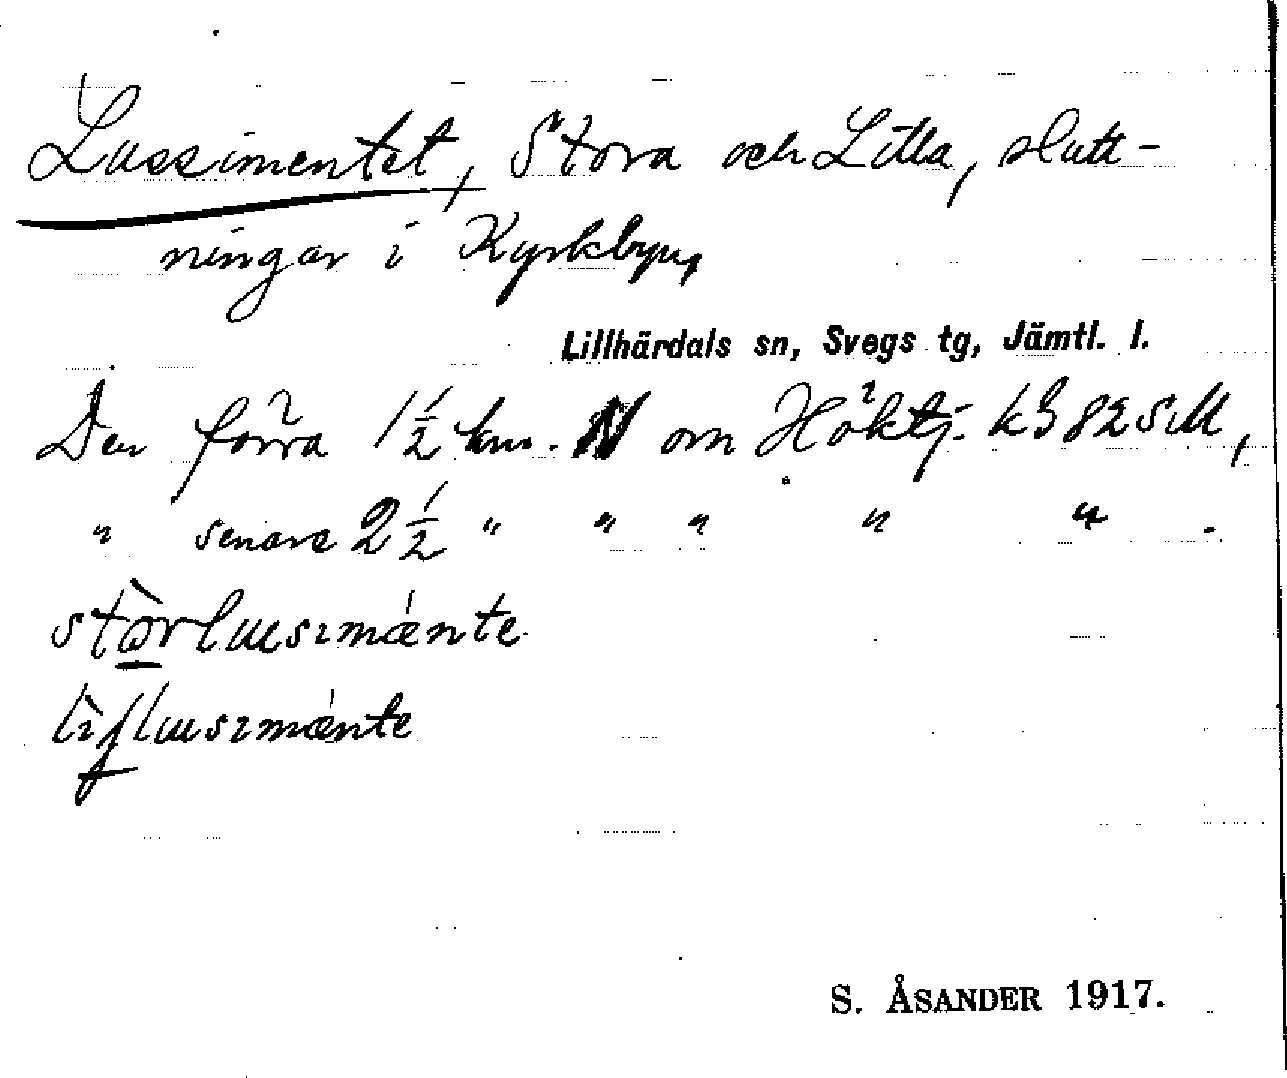 Lussimentet, Stora och Litla, slutt-
ningar i Kyrkbyn,
Lillhärdals sn, Svegs tg, Jämtl. l.
Den förra 1 1/2 km. N om Höktj. k 3 82 SM,
" senare 2 1/2 " " " " " .
stòrlusimǽnte
lìflusimǽnte
S. ÅSANDER 1917.